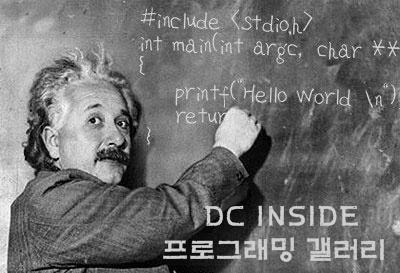 #include <stdio.h>
int main(int argc, char **
{
printf("Hello World \n")
retur
}
DC INSIDE
프로그래밍 갤러리